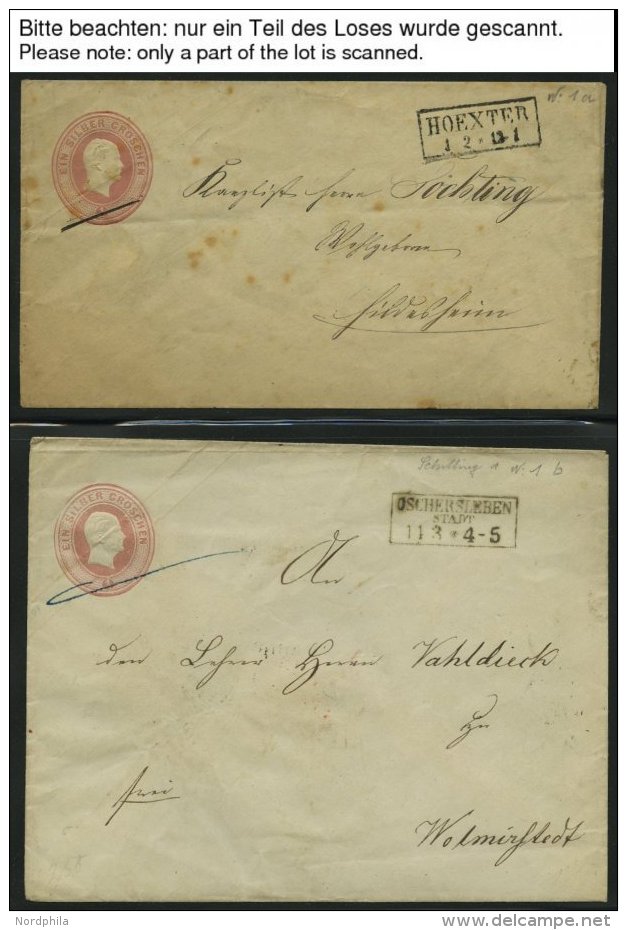 Bitte beachten: nur ein Teil des Loses wurde gescannt.
Please note: only a part of the lot is scanned.
W. 1 a
EIN SILBER GROSCHEN
HOEXTER
1 2 * 12-1
Kanzlist Herrn Söchting
Wohlgeboren
Hildesheim
Schilling 1 W. 1 b
EIN SILBER GROSCHEN
OSCHERSLEBEN
STADT
11 3 * 4-5
An
den Lehrer Herrn Vahldieck
zu
frei
Wolmirstedt
Nordphila
©delcampe.net